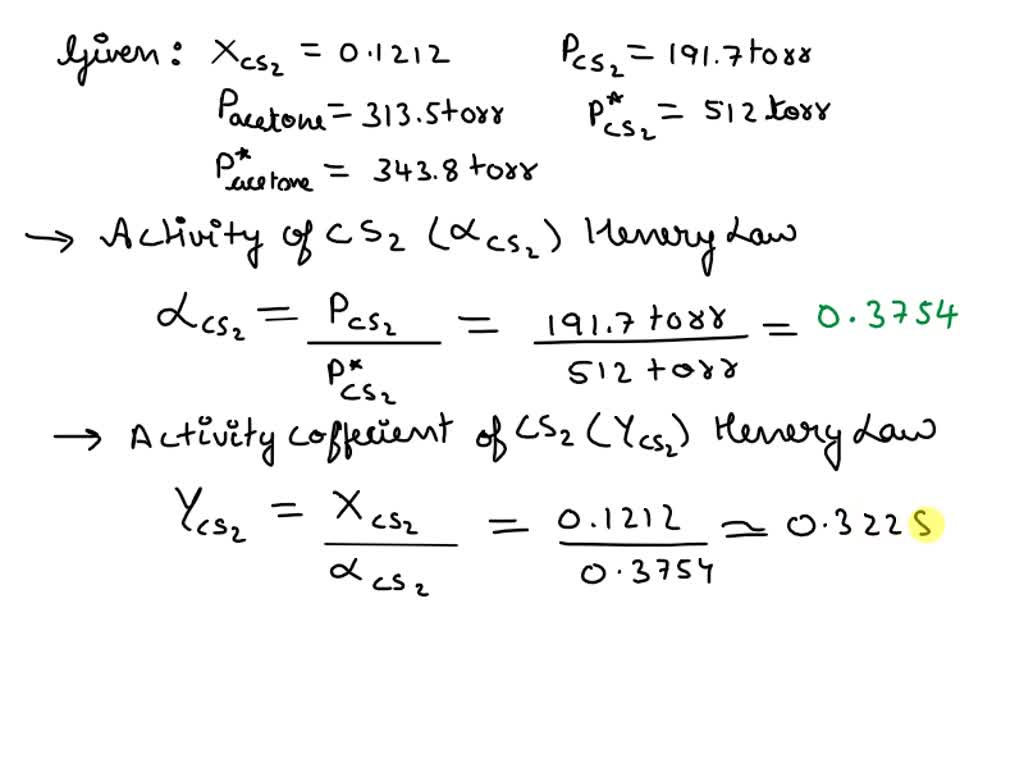 Given: X CS2 = 0.1212 P CS2 = 191.7 torr
P acetone = 313.5 torr P* CS2 = 512 torr
P* acetone = 343.8 torr
→ Activity of CS2 (α CS2) Henery Law
α CS2 = P CS2 / P* CS2 = 191.7 torr / 512 torr = 0.3754
→ Activity coffecient of CS2 (Y CS2) Henery Law
Y CS2 = X CS2 / α CS2 = 0.1212 / 0.3754 ≃ 0.322S